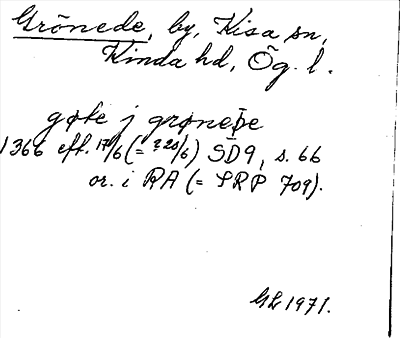 Grönede, by, Kisa sn,
Kinda hd, Ög. l.
gøke j grøneðe
1366 eft. 17/6 (= ? 20/6) SD9, s. 66
or. i RA (= SRP 709).
GL 1971.